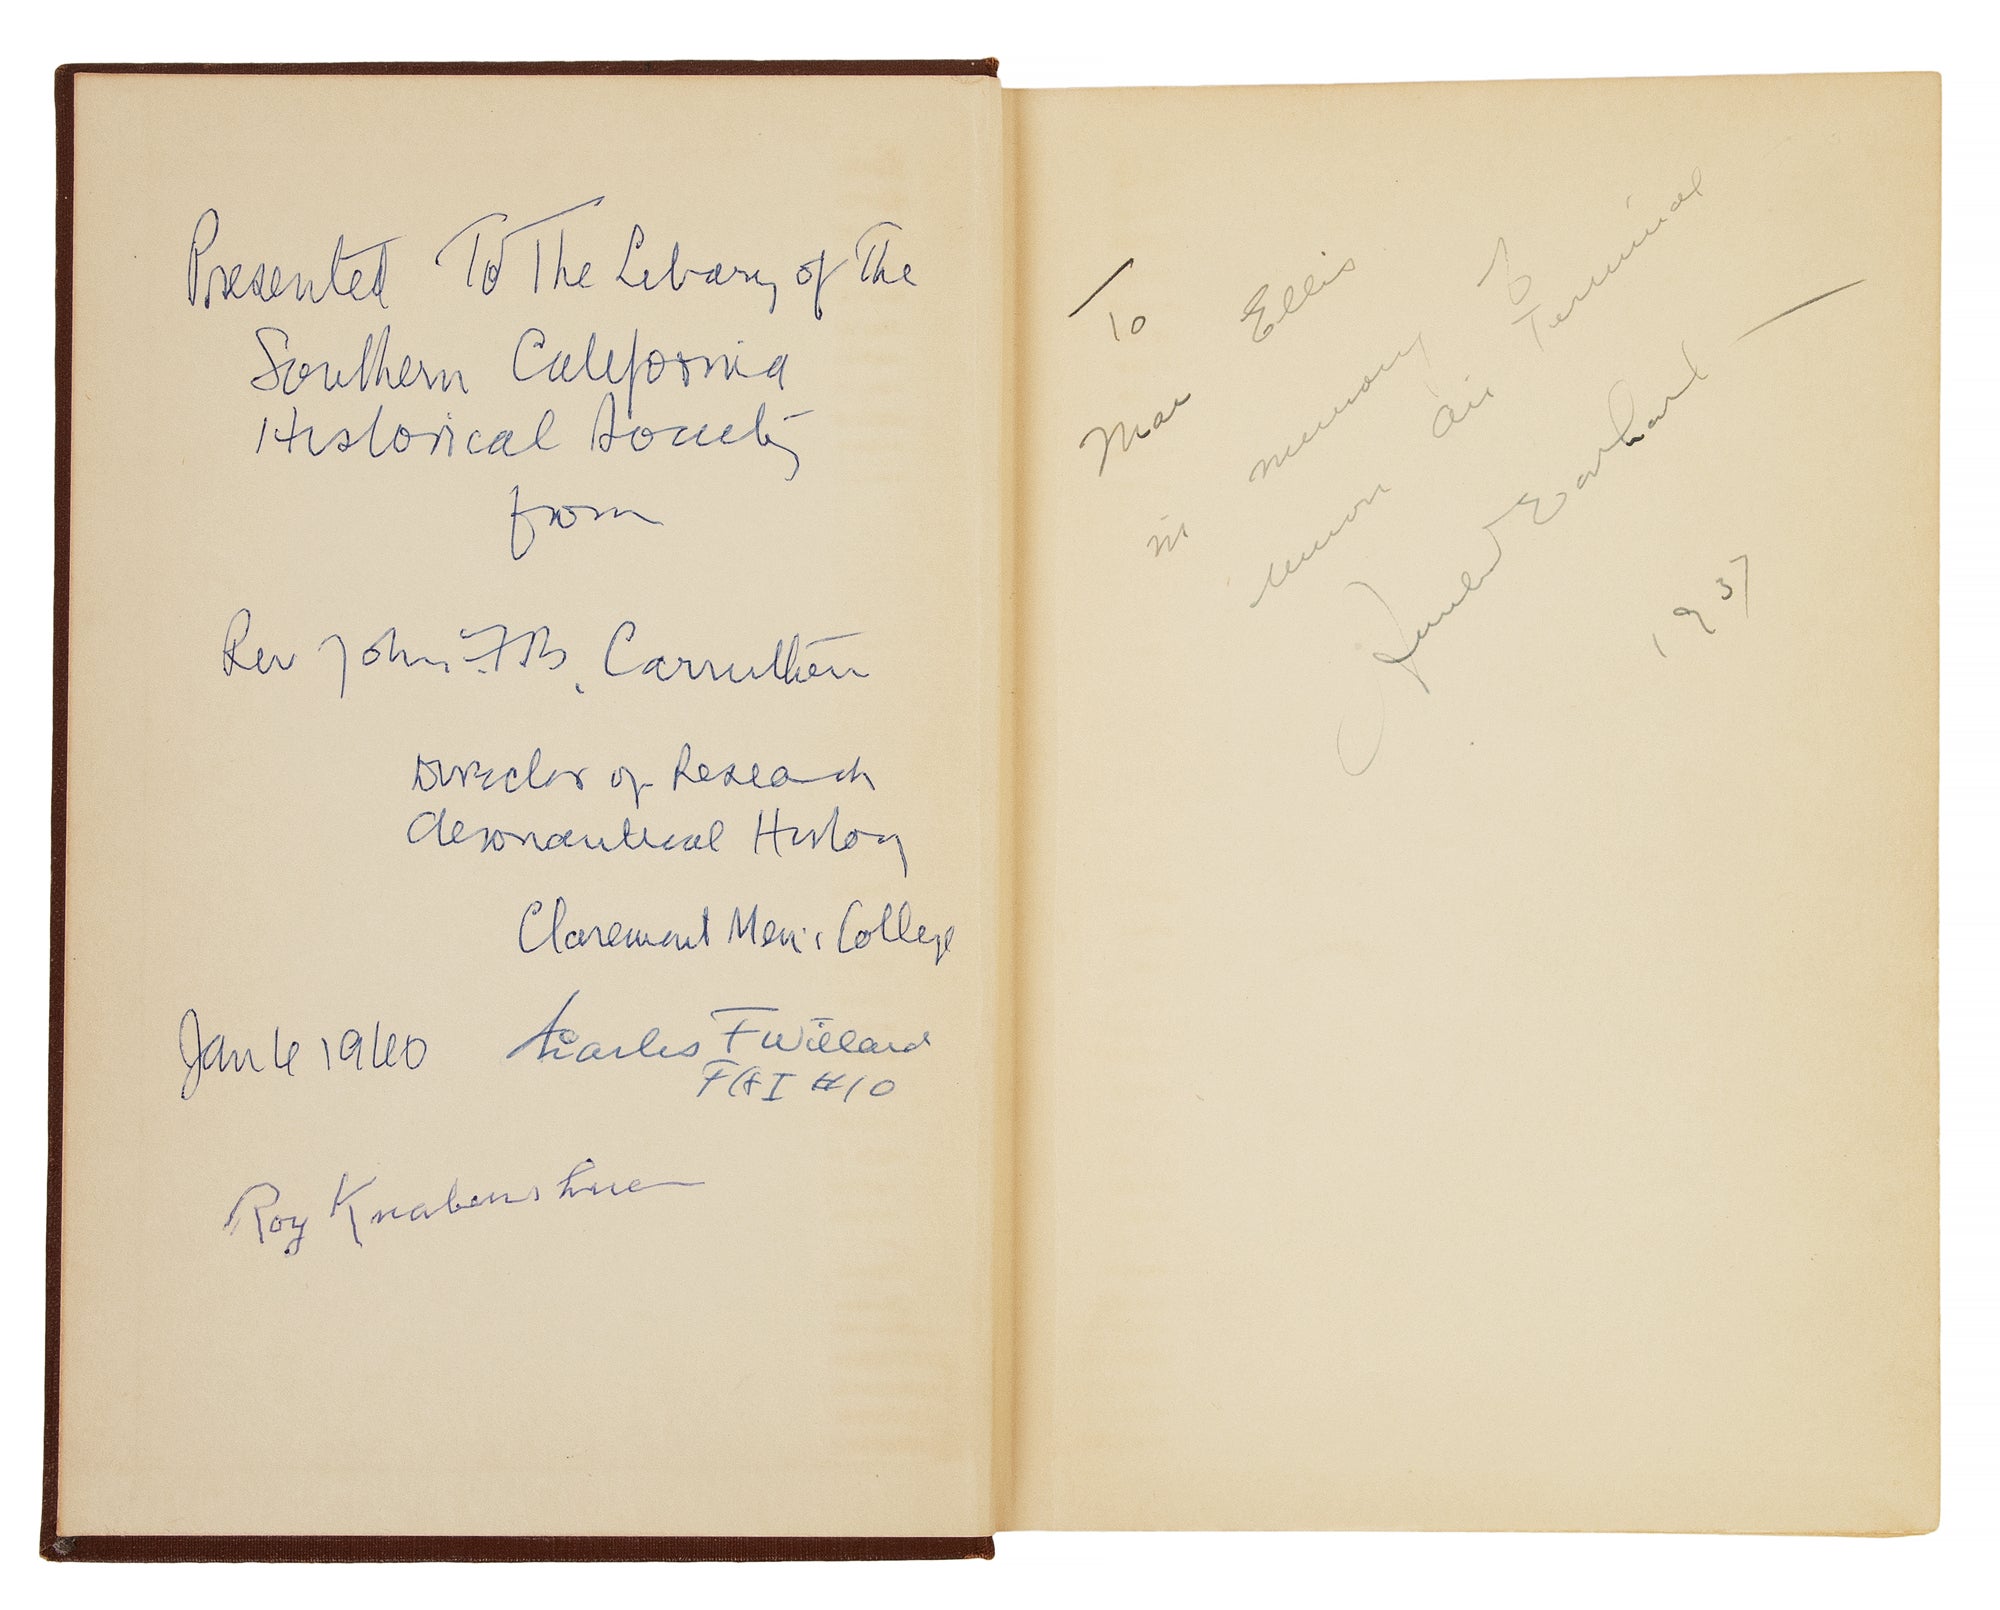 Presented To The Library of The
Southern California
Historical Society
from
Rev John F.B. Carruthers
Director of Research
Aeronautical History
Claremont Men's College
Jan 6 1960 Charles F Willard
FAI #10
Roy Knabenshue
To
Mae Ellis
in memory of
Union Air Terminal
Amelia Earhart
1937